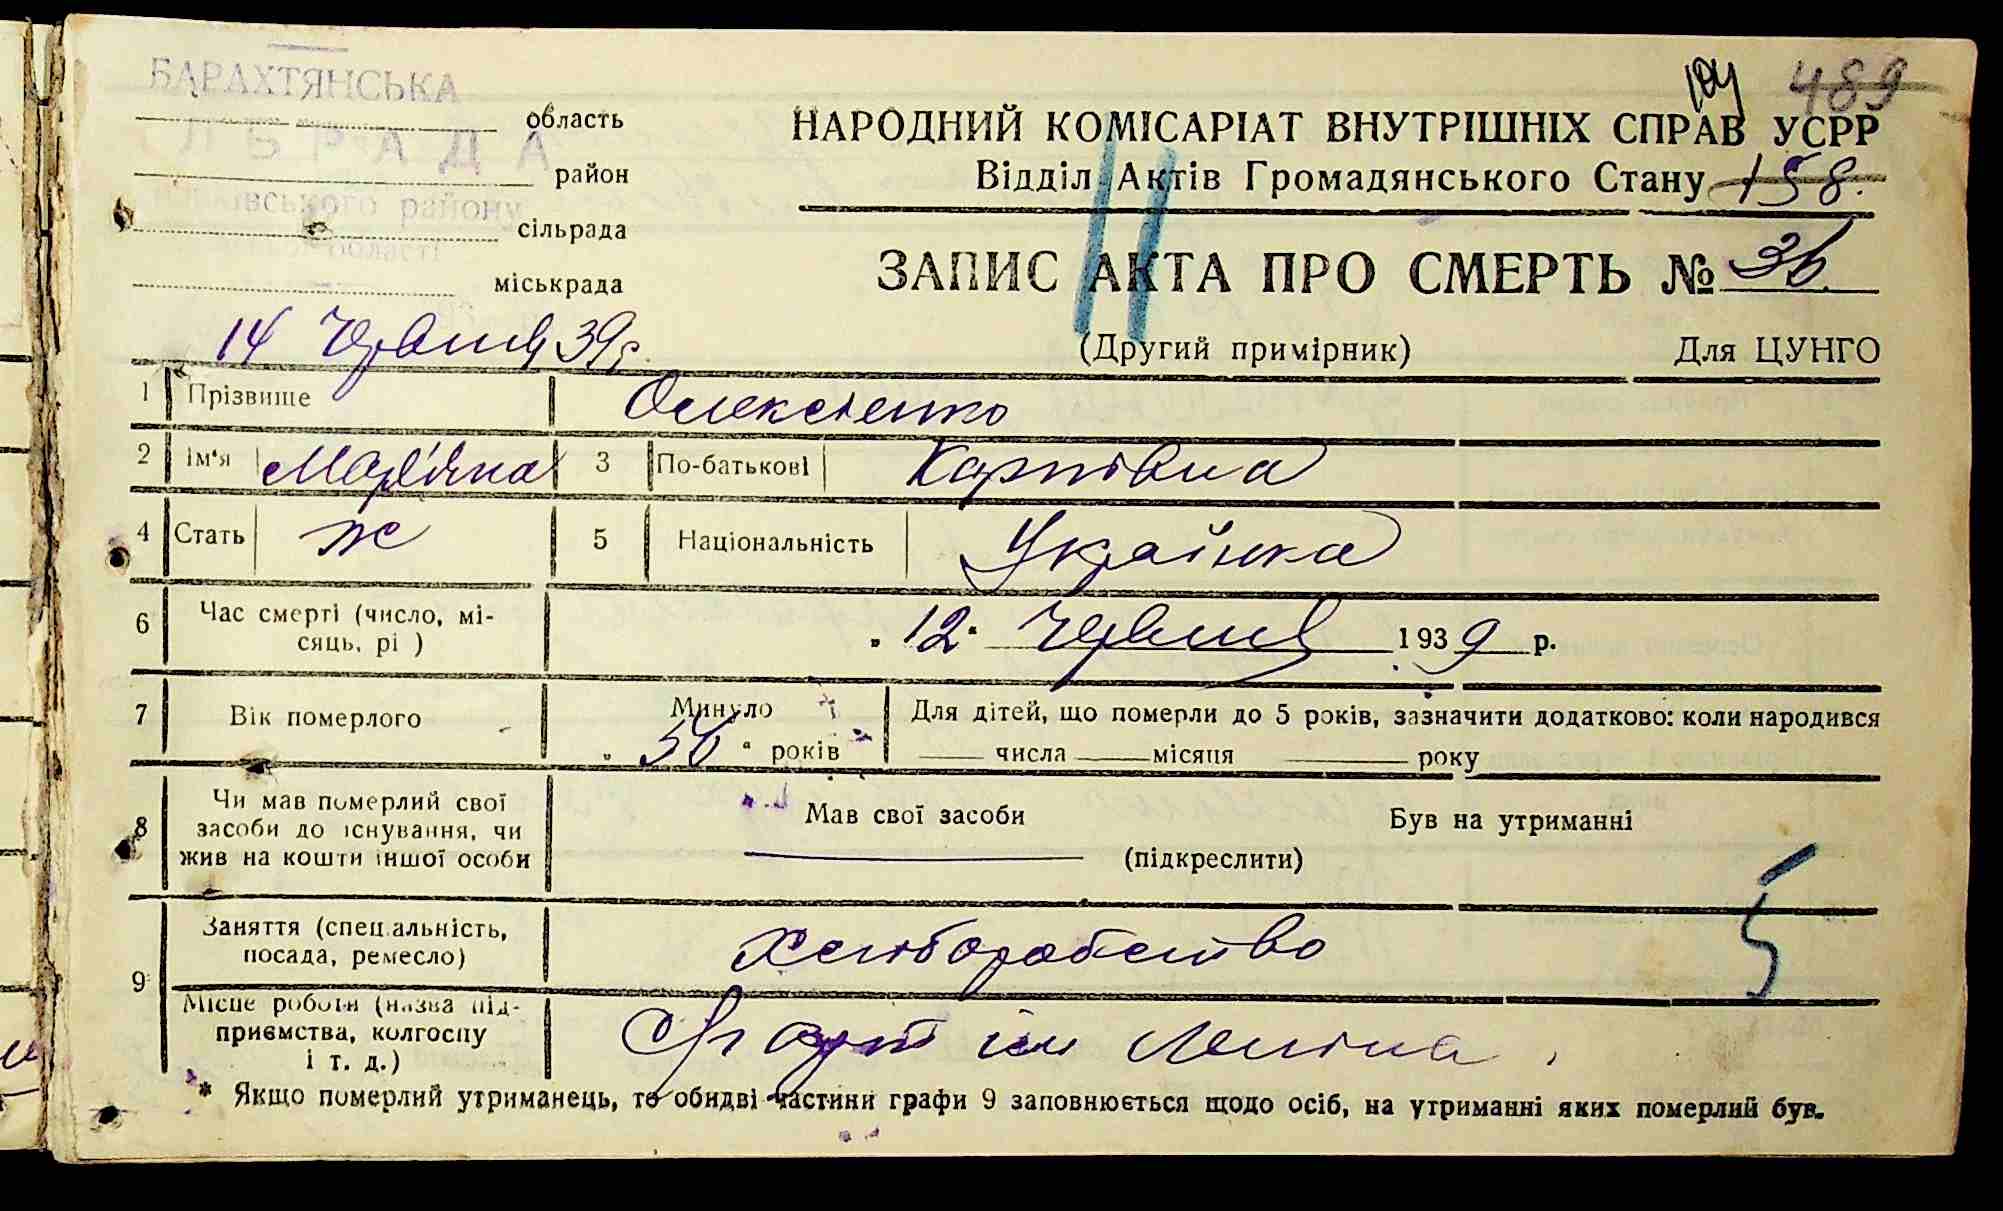 БАРАХТЯНСЬКА
область
РАДА
район
району
сільрада
області
міськрада
489
НАРОДНИЙ КОМІСАРІАТ ВНУТРІШНІХ СПРАВ УСРР
Відділ Актів Громадянського Стану 158.
ЗАПИС АКТА ПРО СМЕРТЬ № 36
14 Червня 39 р.
(Другий примірник) Для ЦУНГО
1 Прізвище Олексієнко
2 Ім'я Мар'яна 3 По-батькові Карпівна
4 Стать ж 5 Національність Українка
6 Час смерті (число, мі-
сяць, рі ) „ 12 " Червня 1939 р.
7 Вік померлого Минуло „ 56 " років
Для дітей, що померли до 5 років, зазначити додатково: коли народився
числа місяця року
8 Чи мав померлий свої
засоби до існування, чи
жив на кошти іншої особи
Мав свої засоби Був на утриманні
(підкреслити)
5
9 Заняття (спеціальність,
посада, ремесло) Хліборобство
Місце роботи (назва під-
приємства, колгоспу
і т. д.) арт ім Леніна
* Якщо померлий утриманець, то обидві частини графи 9 заповнюється щодо осіб, на утриманні яких померлий був.